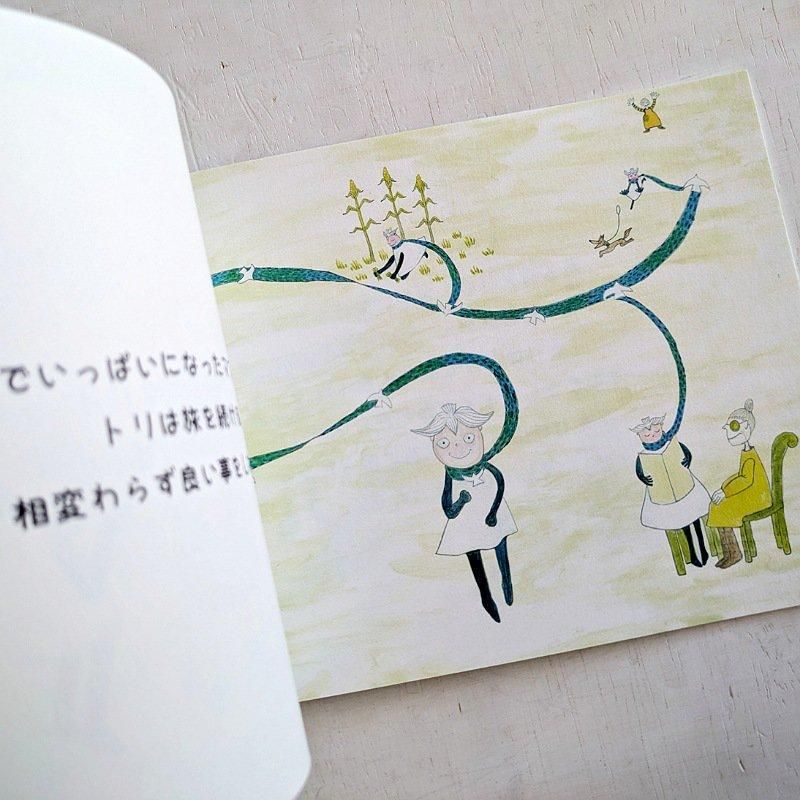 でいっぱいになった
トリは旅を続け
相変わらず良い事を